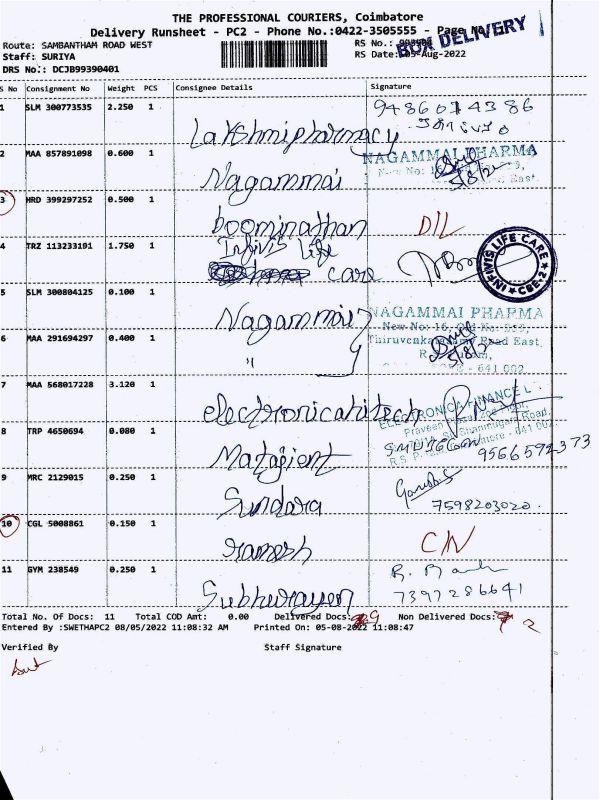 THE PROFESSIONAL COURIERS, Coimbatore
Delivery Runsheet - PC2 - Phone No.:0422-3505555 - Page No. 1
BOX DELIVERY
Route: SAMBANTHAM ROAD WEST
RS No.:
Staff: SURIYA
RS Date: 05-Aug-2022
DRS No.: DCJB99390401
S No Consignment No Weight PCS Consignee Details Signature
1 SLM 300773535 2.250 1 Lakshmipharmacy 9486014386
2 MAA 857891098 0.600 1 Nagammai NAGAMMAI PHARMA
New No: 16,
East.
5/8/2
3 HRD 399297252 0.500 1 boominathan D/L
4 TRZ 113233191 1.750 1 Infivis life care INFIVIS LIFE CARE ★ CBE-2 ★
5 SLM 300804125 0.100 1 Nagammai NAGAMMAI PHARMA
New No: 16, Old No:
6 MAA 291694297 0.400 1 " Thiruvenkatasamy Road East,
R.S. Puram,
- 641 002
5/8/2
7 MAA 568017228 3.120 1 electronicahitech ELECTRONICA FINANCE L
Praveen
Shanmugam Road,
R.S. P - 641 002
8 TRP 4650694 0.080 1 Matrjient 9566592373
9 MRC 2129015 0.250 1 Sundara Ganesh
7598203020.
10 CGL 5008861 0.150 1 ramesh C/N
11 GYM 238549 0.250 1 Subhurayen R.
7397286641
Total No. Of Docs: 11 Total COD Amt: 0.00 Delivered Docs: 9 Non Delivered Docs: 2
Entered By :SWETHAPC2 08/05/2022 11:08:32 AM Printed On: 05-08-2022 11:08:47
Verified By Staff Signature